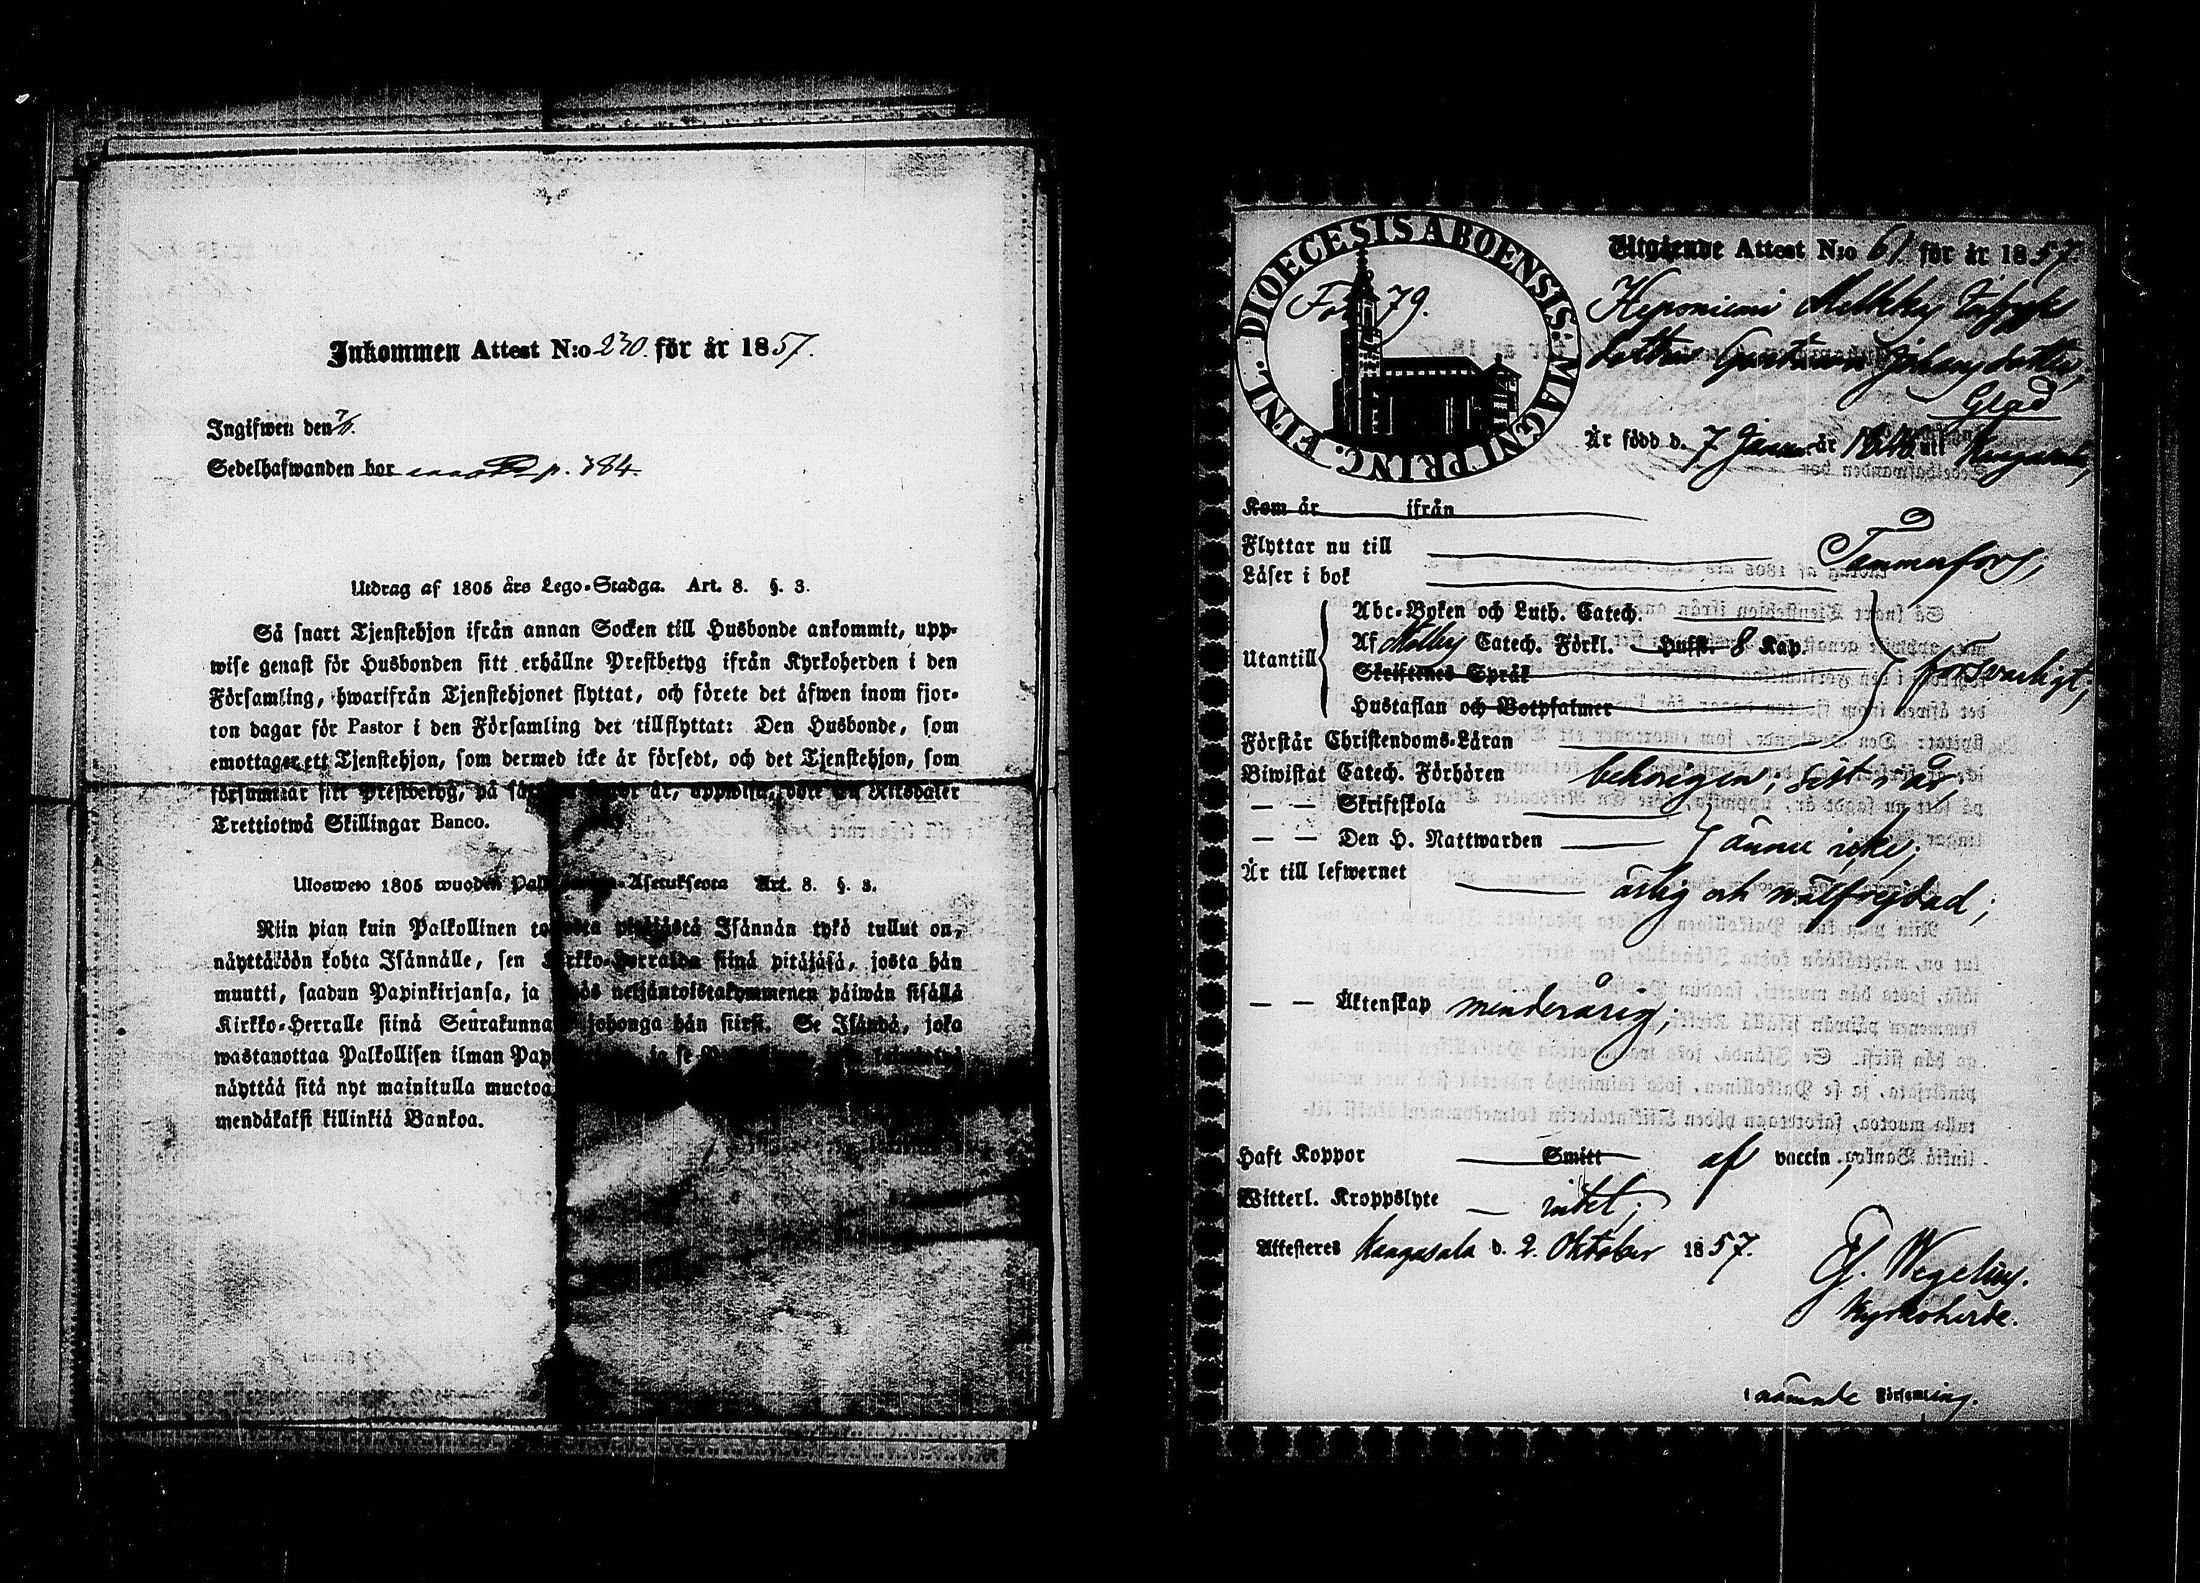 Inkommen Attest N:o 230. för år 1857.
Ingifwen den 7/11.
Sedelhafwanden bor p. 784.
Utdrag af 1805 års Lego-Stadga. Art. 8. §. 3.
Så snart Tjenstehjon ifrån annan Socken till Husbonde ankommit, upp-
wise genast för Husbonden sitt erhållne Prestbetyg ifrån Kyrkoherden i den
Församling, hwarifrån Tjenstehjonet flyttat, och förete det äfwen inom fjor-
ton dagar för Pastor i den Församling det tillflyttat: Den Husbonde, som
emottager ett Tjenstehjon, som dermed icke är försedt, och det Tjenstehjon, som
försummar sitt Prestbetyg, på sätt år, uppwisa, En Riksdaler
Trettiotwå Skillingar Banco.
Ulosweto 1805 wuoden Asetuksesta Art. 8. §. 3.
Niin pian kuin Palkollinen toisesta pitäjästä Isännän tykö tullut on,
näyttäköön kohta Isännälle, sen Kirkko-Herralda siinä pitäjäsä, josta hän
muutti, saadun Papinkirjansa, ja myös neljäntoistakymmenen päiwän sisällä
Kirkko-Herralle siinä Seurakunnasa johonga hän siirsi. Se Isändä, joka
wastanottaa Palkollisen ilman ja se
näyttää sitä nyt mainitulla muotoa
mendäkaksi killinkiä Bankoa.
DIOECESIS ABOENSIS: MAGNI PRINC. FINL.
Fol 79.
Utgående Attest N:o 61 för år 1857.
Heponiemi
Gustava Johansdotter
Glad
Är född d. 7 Januar är uti Kangasala,
Kom år ifrån
Flyttar nu till Tammerfors;
Läser i bok
Utantill Abc-Boken och Luth. Catech.
Af Catech. Förkl. Hufst. 8 Kap.
Skriftenes Språk försvarligt;
Hustaflan och Botpsalmer
Förstår Christendoms-Läran
Biwistat Catech. Förhören behörigen, sist i år,
— — Skriftskola
— — Den H. Nattwarden ännu icke;
Är till lefwernet ärlig och wälfrejdad;
— — Äktenskap minderårig;
Haft Koppor Smitt af vaccin,
Witterl. Kroppslyte — intet;
Attesteres Kangasala d. 2. Oktober 1857.
Wegelius.
Kyrkoherde.
i nämnde Församling.